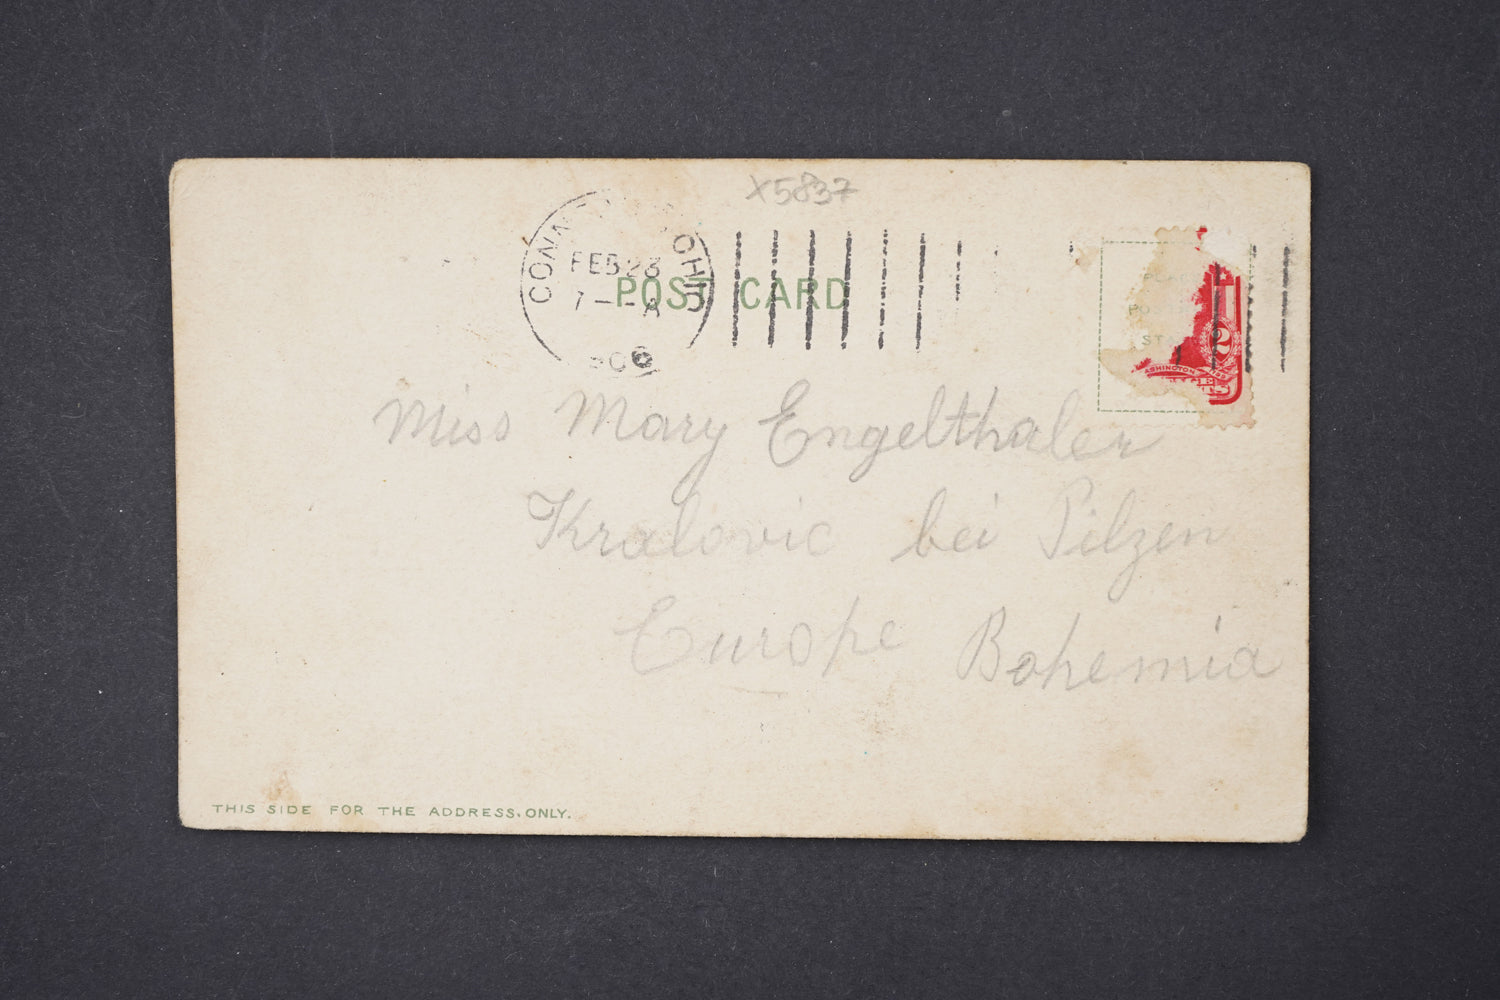 X5837
OHIO
FEB 23
7 - A
POST CARD
2
Miss Mary Engelthaler
Kralovic bei Pilzen
Europe Bohemia
THIS SIDE FOR THE ADDRESS ONLY.